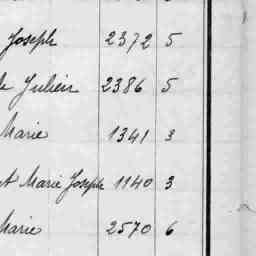 Joseph 2372 5
Julien 2386 5
Marie 1341 3
Marie Joseph 1140 3
Marie 2570 6